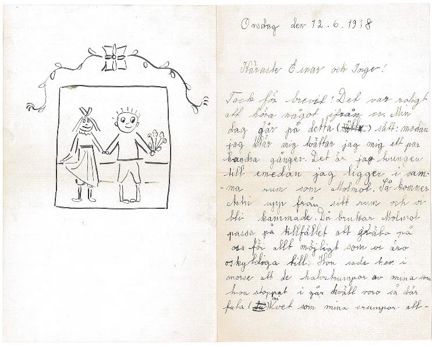 Onsdag den 12.6.1938
Käraste Einar och Inger!
Tack för brevet! Det var roligt
att höra något från er. Min
dag går på detta sätt: medan
jag klär mig tvättar jag mig ett par
gånger. Det är jag tvungen
till emedan jag ligger i sam-
ma rum som Moster. Så kommer
upp från sitt rum och vi
bli kammade. Då brukar Moster
passa på tillfället att gräla på
oss för allt möjligt som vi äro
oskyldiga till. Hon sade här i
morse att de av mina som
hon stoppat i går kväll voro så där
som mina strumpor all-